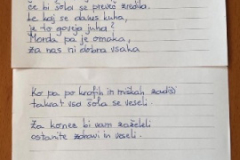 če bi šola se preveč
Le kaj se danes kuha,
je to goveja juha?
Morda pa je omaka,
za nas ni dobra vsaka.
Ko pa po krofih in miškah zadiši
takrat vsa šola se veseli.
Za konec bi vam zaželeli
ostanite zdravi in veseli.